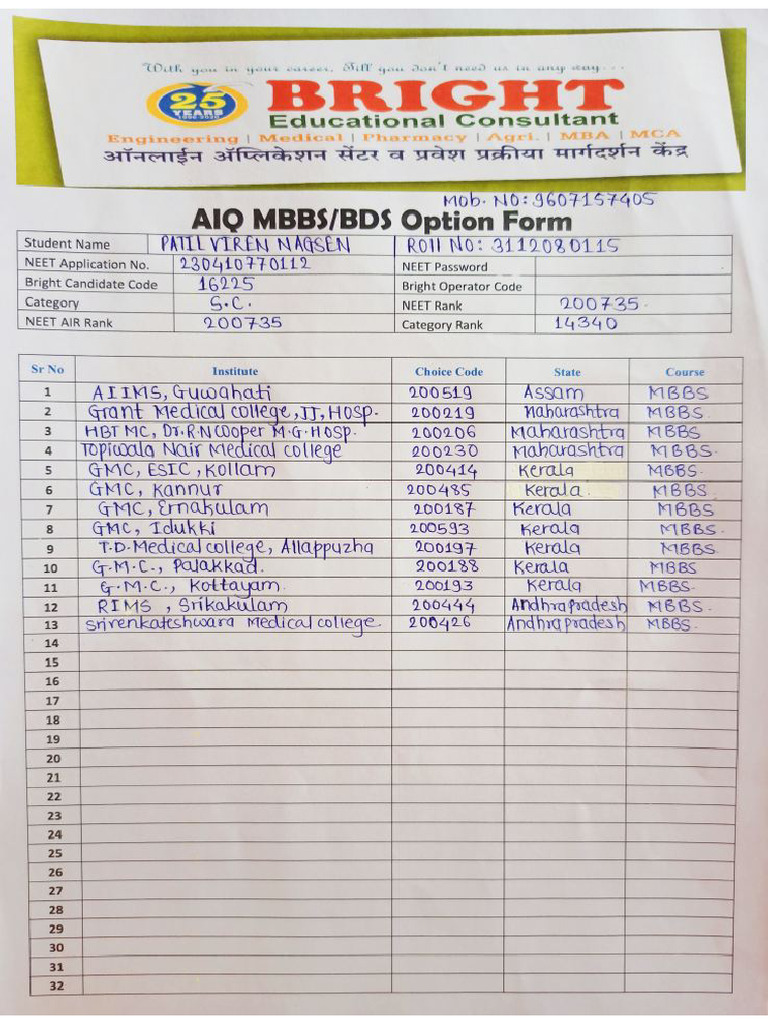 With you in your career, Till you don't need us in any way...
25 YEARS 1996-2020
BRIGHT
Educational Consultant
Engineering | Medical | Pharmacy | Agri. | MBA | MCA
ऑनलाईन ॲप्लिकेशन सेंटर व प्रवेश प्रक्रीया मार्गदर्शन केंद्र
Mob. NO: 9607157405
AIQ MBBS/BDS Option Form
Student Name PATIL VIREN NAGSEN Roll No: 3112080115
NEET Application No. 230410770112 NEET Password
Bright Candidate Code 16225 Bright Operator Code
Category S.C. NEET Rank 200735.
NEET AIR Rank 200735 Category Rank 14340
Sr No Institute Choice Code State Course
1 AIIMS, Guwahati 200519 Assam MBBS
2 Grant Medical college, JJ, HOSP. 200219 Maharashtra MBBS.
3 HBTMC, Dr. R.N Cooper M.G.Hosp. 200206 Maharashtra MBBS
4 Topiwala Nair Medical college 200230 Maharashtra MBBS.
5 GMC, ESIC, Kollam 200414 Kerala MBBS.
6 GMC, Kannur 200485 Kerala. MBBS
7 GMC, Ernakulam 200187 Kerala MBBS
8 GMC, Idukki 200593 Kerala MBBS.
9 T.D. Medical college, Allappuzha 200197 Kerala MBBS.
10 G.M.C., Palakkad. 200188 Kerala MBBS.
11 G.M.C., Kottayam. 200193 Kerala MBBS.
12 RIMS, Srikakulam 200444 Andhra pradesh MBBS.
13 Srivenkateshwara Medical college. 200426 Andhra pradesh MBBS.
14
15
16
17
18
19
20
21
22
23
24
25
26
27
28
29
30
31
32